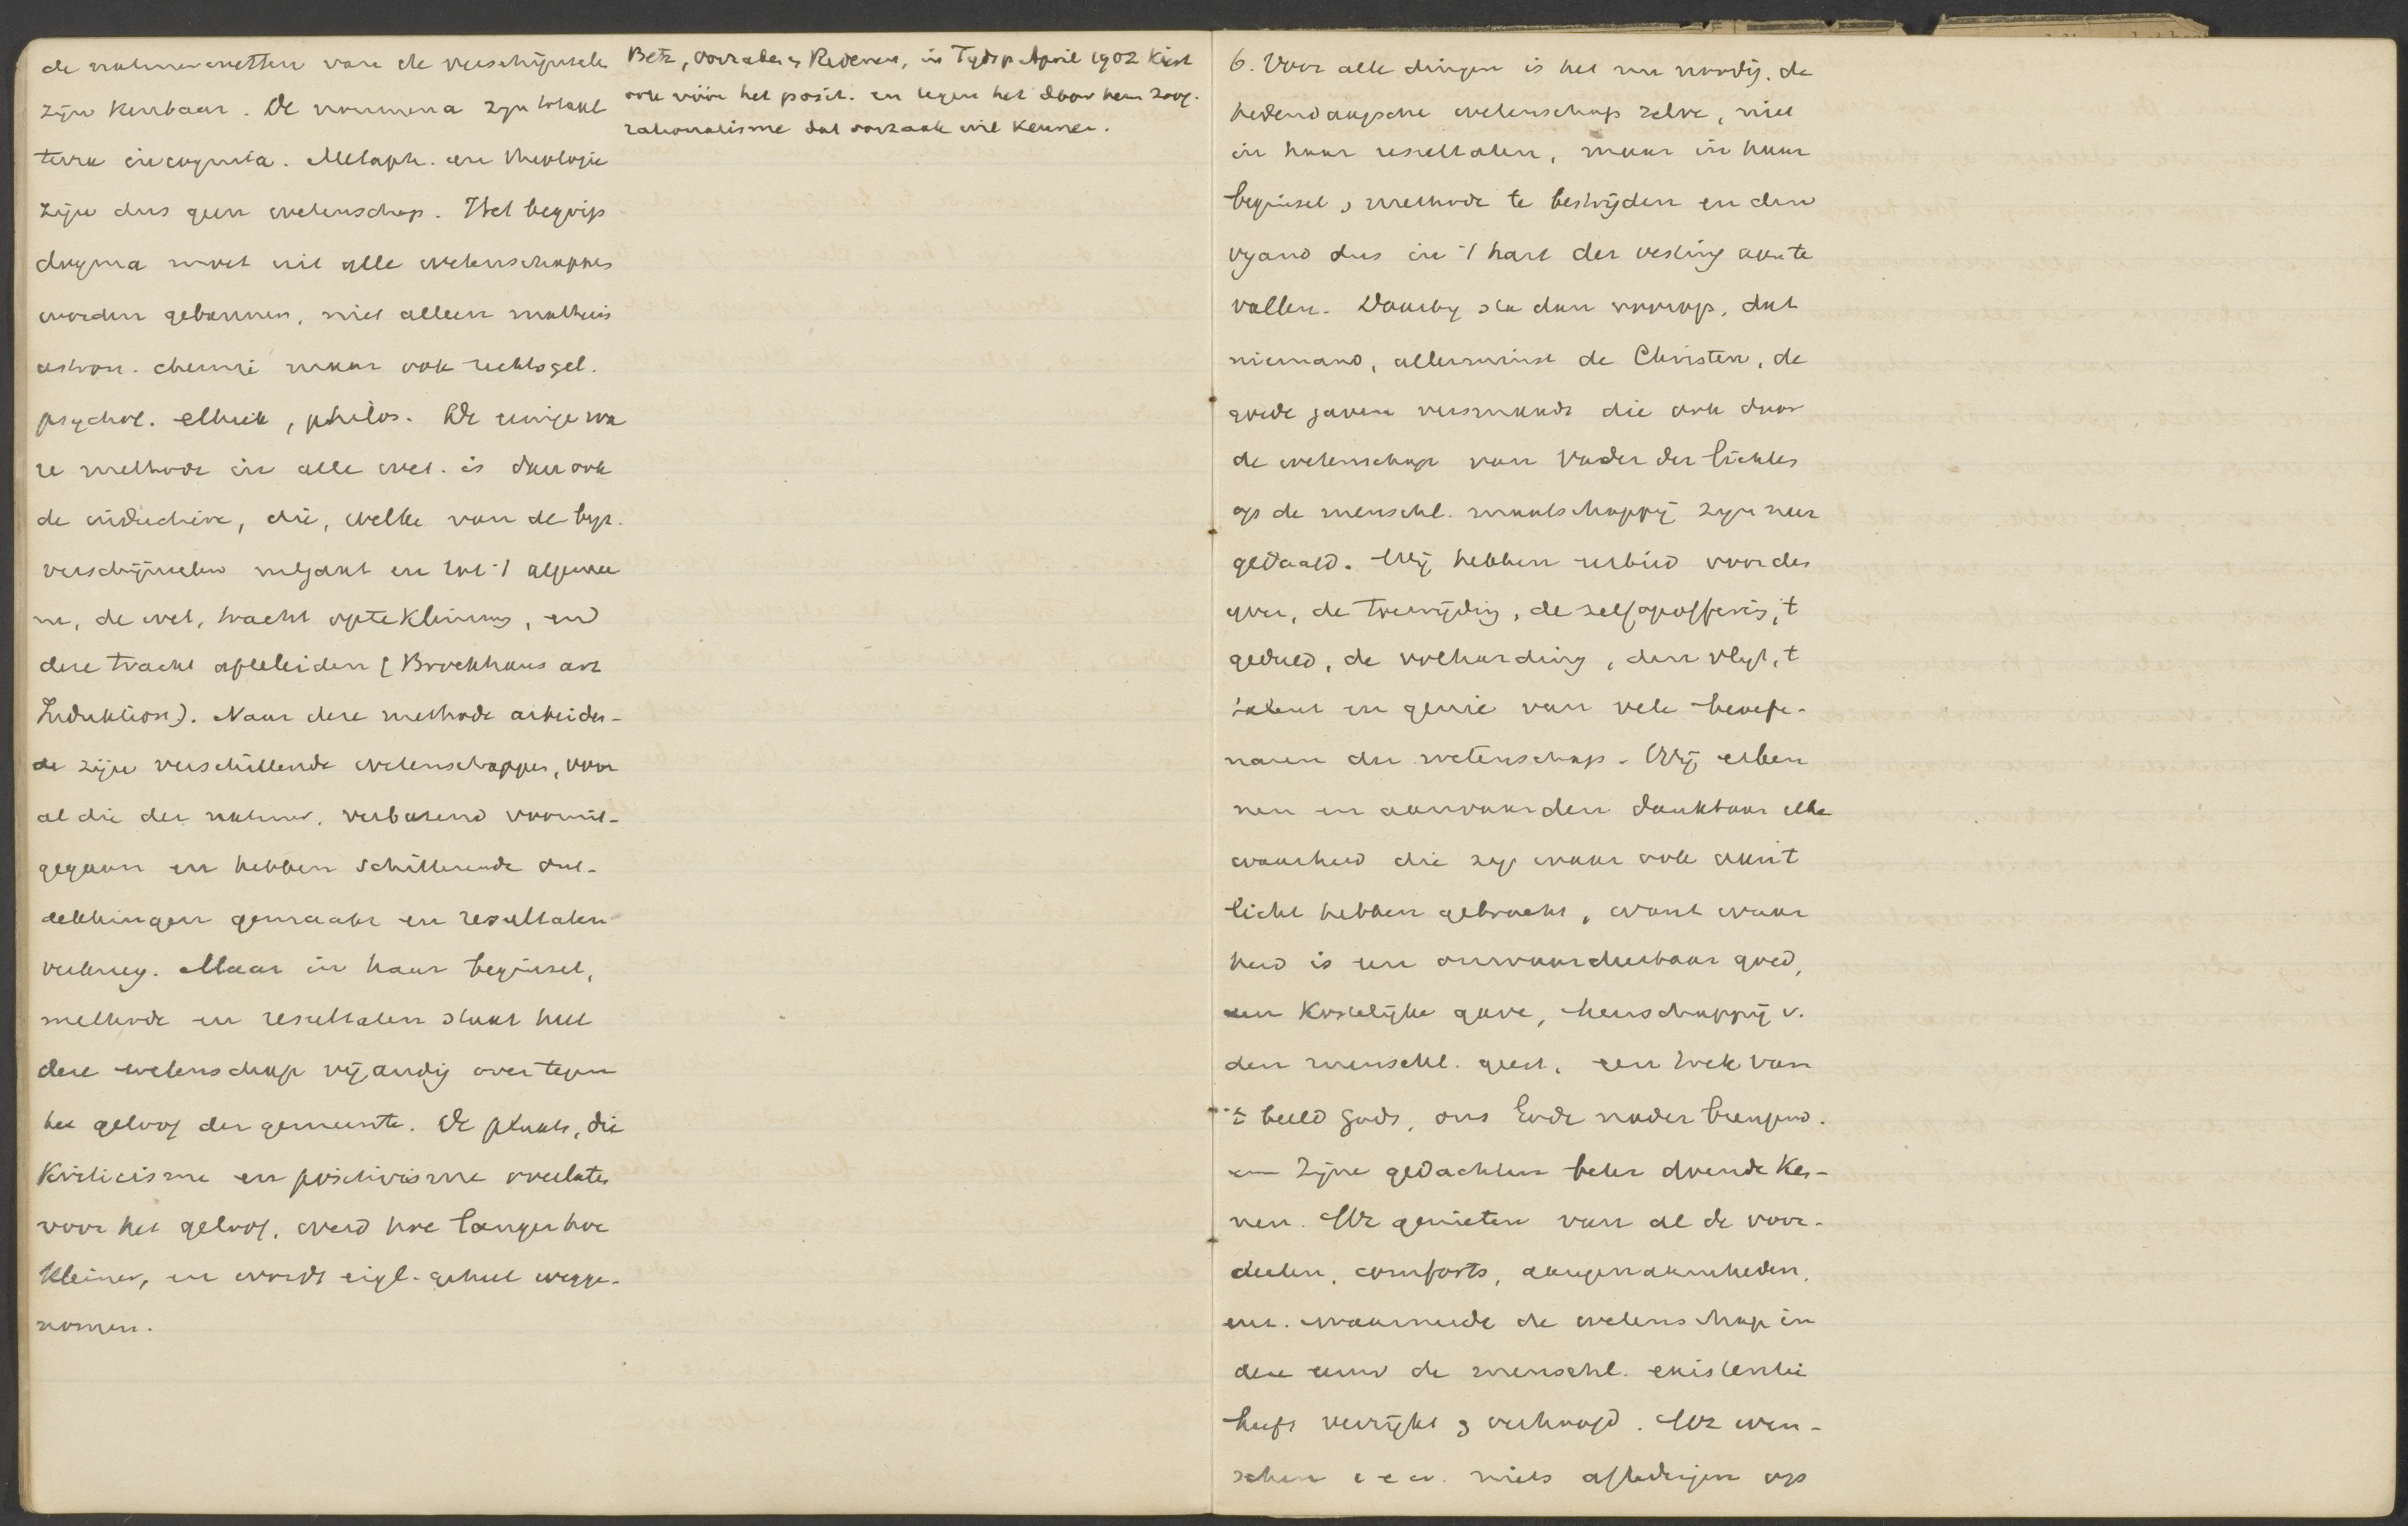 de natuurwetten van de verschijnselen
zijn kenbaar. De noumena zijn totaal
terra incognita. Metaph. en theologie
zijn dus geen wetenschap. Het begrip
dogma moet uit alle wetenschappen
worden gebannen, niet alleen mathesis
astron. chemie maar ook rechtsgel.
psychol. ethiek, philos. De eenige wa
re methode in alle wet. is dan ook
de inductieve, die, welke van de byz.
verschijnselen uitgaat en tot 't algemee
ne, de wet, tracht op te klimmen, en d
deze tracht af te leiden (Brockhaus art
Induktion). Naar deze methode arbeiden-
de zijn verschillende wetenschappen, voor
al die der natuur, verbazend vooruit-
gegaan en hebben schitterende ont-
dekkingen gemaakt en resultaten
verkreg. Maar in haar beginsel,
methode en resultaten staat heel
deze wetenschap vijandig over tegen
het geloof der gemeente. De plaats, die
Kriticisme en positivisme overlaten
voor het geloof, werd hoe langer hoe
kleiner, en wordt eigl. geheel wegge-
nomen.
Betz, oorzaken en Redenen, in Tydsp April 1902 Kiest
ook vóór het posit. en tegen het door hem zoog.
rationalisme dat oorzaak wil kennen.
6. Voor alle dingen is het nu noodig, de
hedendaagsche wetenschap zelve, niet
in haar resultaten, maar in haar
beginsel & methode te bestrijden en den
vyand dus in 't hart der vesting aan te
vallen. Daarby sta dan voorop, dat
niemand, allerminst de Christen, de
goede gaven versmaadt die ook door
de wetenschap van Vader der lichten
op de menschl. maatschappij zijn neer
gedaald. Wij hebben eerbied voor den
yver, de toewijding, de zelfopoffering, 't
geduld, de volharding, den vlyt, 't
talent en genie van vele beoefe-
naren der wetenschap. Wij erken
nen en aanvaarden dankbaar elke
waarheid die zij waar ook aan 't
licht hebben gebracht, want waar
heid is een onwaardeerbaar goed,
een Kostelijke gave, heerschappij v.
den menschl. geest, een trek van
't beeld Gods, ons Gode nader brengend.
en Zijne gedachten beter doende Ken-
nen. We genieten van al de voor-
deelen, comforts, aangenaamheden,
enz. waarmede de wetenschap in
deze eeuw de menschl. existentie
heeft verrijkt & verhoogd. We wen-
schen e e w. niets af te dingen op